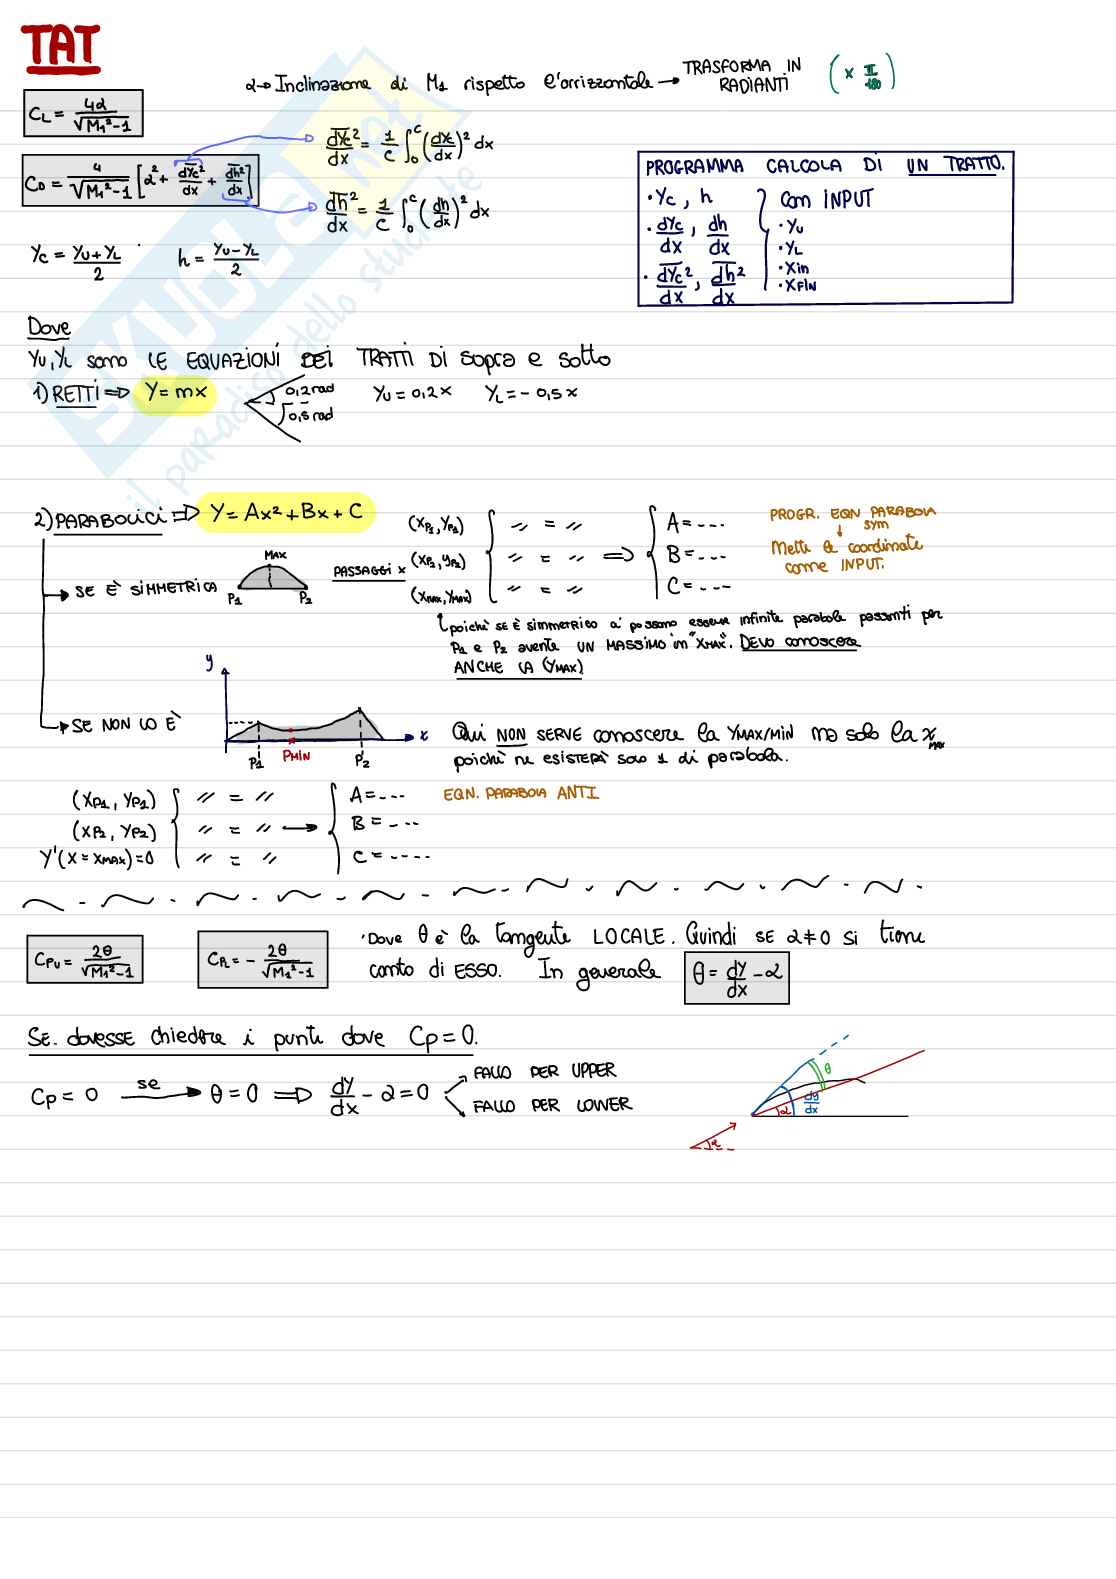 TAT
α → Inclinazione di M1 rispetto l'orizzontale → TRASFORMA IN RADIANTI (× π/180)
CL = 4α/√(M1²-1)
CD = 4/√(M1²-1) [α² + dYc²/dx + dh²/dx]
dYc²/dx = 1/C ∫₀ᶜ (dYc/dx)² dx
dh²/dx = 1/C ∫₀ᶜ (dh/dx)² dx
Yc = (YU + YL)/2
h = (YU - YL)/2
PROGRAMMA CALCOLA DI UN TRATTO.
· Yc, h
· dYc/dx, dh/dx
· dYc²/dx, dh²/dx
Con INPUT
· YU
· YL
· Xin
· XFIN
Dove
YU, YL sono LE EQUAZIONI DEI TRATTI DI sopra e sotto
1) RETTI ⇒ Y = mx
0,2 rad
0,5 rad
YU = 0,2x YL = - 0,5x
2) PARABOLICI ⇒ Y = Ax² + Bx + C
→ SE È SIMMETRICA
MAX
P1 P2
PASSAGGI ×
(XP1, YP1) " = "
(XP2, YP2) " = "
(XMAX, YMAX) " = "
⇒
A = ---
B = ---
C = ---
PROGR. EQN PARABOLA
↓ SYM
Metti le coordinate
come INPUT.
poichè se È simmetrico ci possono essere infinite parabole passanti per
P1 e P2 avente UN MASSIMO in "XMAX". DEVO CONOSCERE
ANCHE LA (YMAX)
→ SE NON LO È
y
x
P1 PMIN P2
Qui NON SERVE conoscere la YMAX/MIN ma solo la XMAX
poichè ne ESISTERÀ solo 1 di parabola.
(XP1, YP1) " = "
(XP2, YP2) " = "
Y'(X = XMAX) = 0 " = "
→
A = ---
B = ---
C = ----
EQN. PARABOLA ANTI
CPU = 2θ/√(M1²-1)
CPL = - 2θ/√(M1²-1)
· Dove θ è la tangente LOCALE. Quindi SE α≠0 si tiene
conto di ESSO. In generale θ = dy/dx - α
SE dovesse chiedere i punti dove Cp = 0.
Cp = 0 se → θ = 0 ⇒ dy/dx - α = 0
FALLO PER UPPER
FALLO PER LOWER
θ
α
dy/dx
α